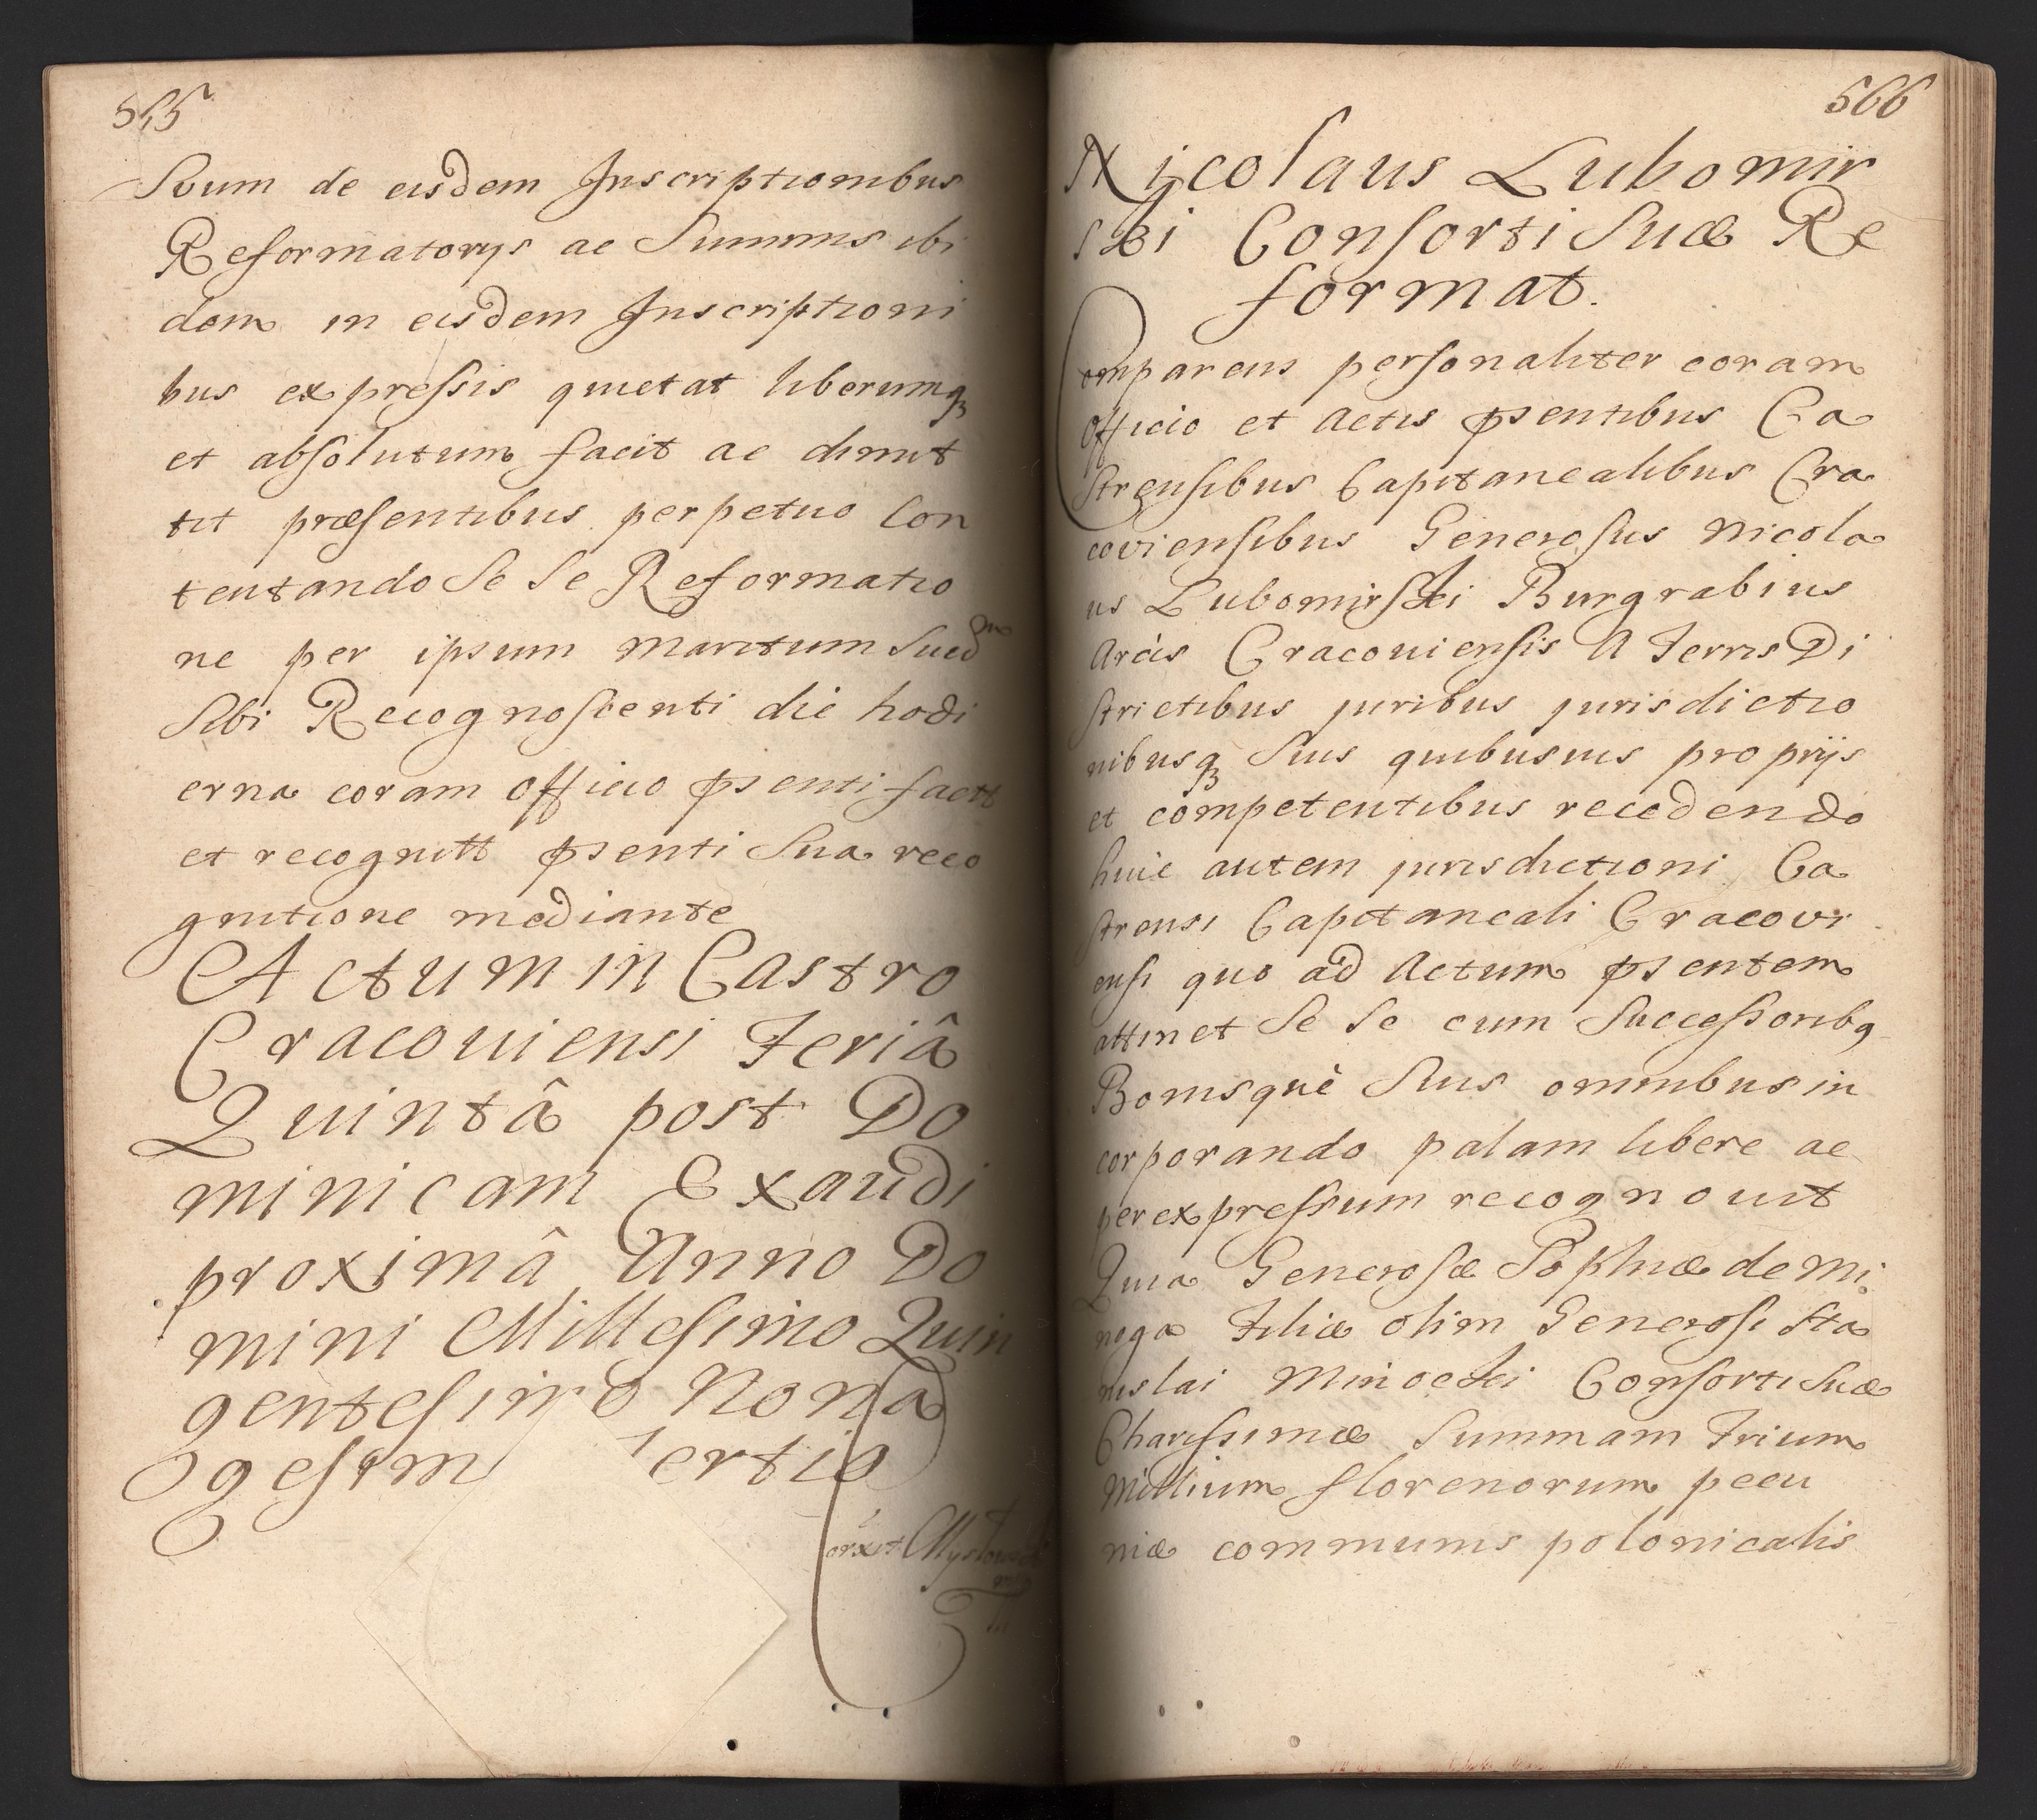 565
Suum de eisdem Inscriptionibus
Reformatorijs ac Summis ibi
dem in eisdem Inscriptioni
bus expreſsis quietat liberumq3
et abſolutum facit ac dimit
tit præſentibus perpetuo Con
tentando Se Se Reformatio
ne per ipsum Maritum Suū
Sibi Recognoſcenti die hodi
erna coram Officio pſenti factt
et recognitt pſenti Sua reco
gnitione mediante
Actum in Castro
Cracouiensi Feriâ
Quintâ post Do
minicam Exaudi
proximâ Anno Do
mini Milleſimo Quin
genteſimo Nona
geſim Tertio
566
Nicolaus Lubomir
ski Conſorti Suæ Re
format.
Comparens perſonaliter coram
Officio et Actis pſentibus Ca
ſtrenſibus Capitanealibus Cra
covienſibus Generoſus Nicola
us Lubomirſki Burgrabius
Arcis Cracouienſis A Terris Di
ſtrictibus juribus jurisdictio
nibusq3 Suis quibusuis proprijs
et competentibus recedendo
huic autem jurisdictioni Ca
ſtrensi Capitaneali Cracovi
enſi quo ad Actum pſentem
attinet Se Se cum Succeſsoribq
Bonisquè Suis omnibus in
corporando palam libere ac
per expreſsum recognouit
Quia Generoſæ Sophiæ de Mi
noga Filiæ olim Generoſi Sta
nislai Minocki Conſorti Suæ
Chariſsimæ Summam Trium
Millium florenorum pecu
niæ communis polonicalis